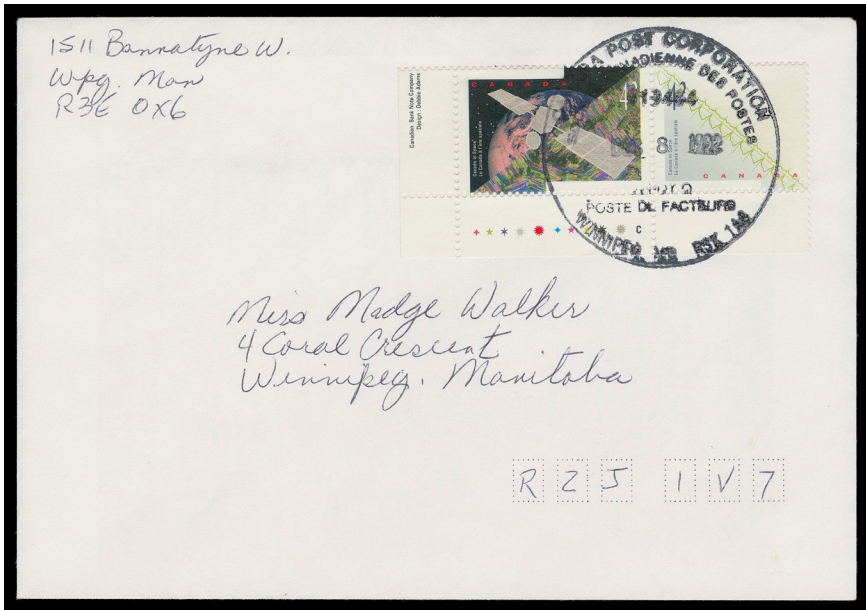 1511 Bannatyne W.
Wpg. Man
R3E 0X6
Canadian Bank Note Company
Design: Debbie Adams
CANADA
42
Canada in Space
Le Canada à l'ère spatiale
42
CANADA
C
POST CORPORATION
CANADIENNE DES POSTES
8 1992
POSTE DE FACTEURS
WINNIPEG MB R3K 1A0
Miss Madge Walker
4 Coral Crescent
Winnipeg, Manitoba
R 2 J 1 V 7